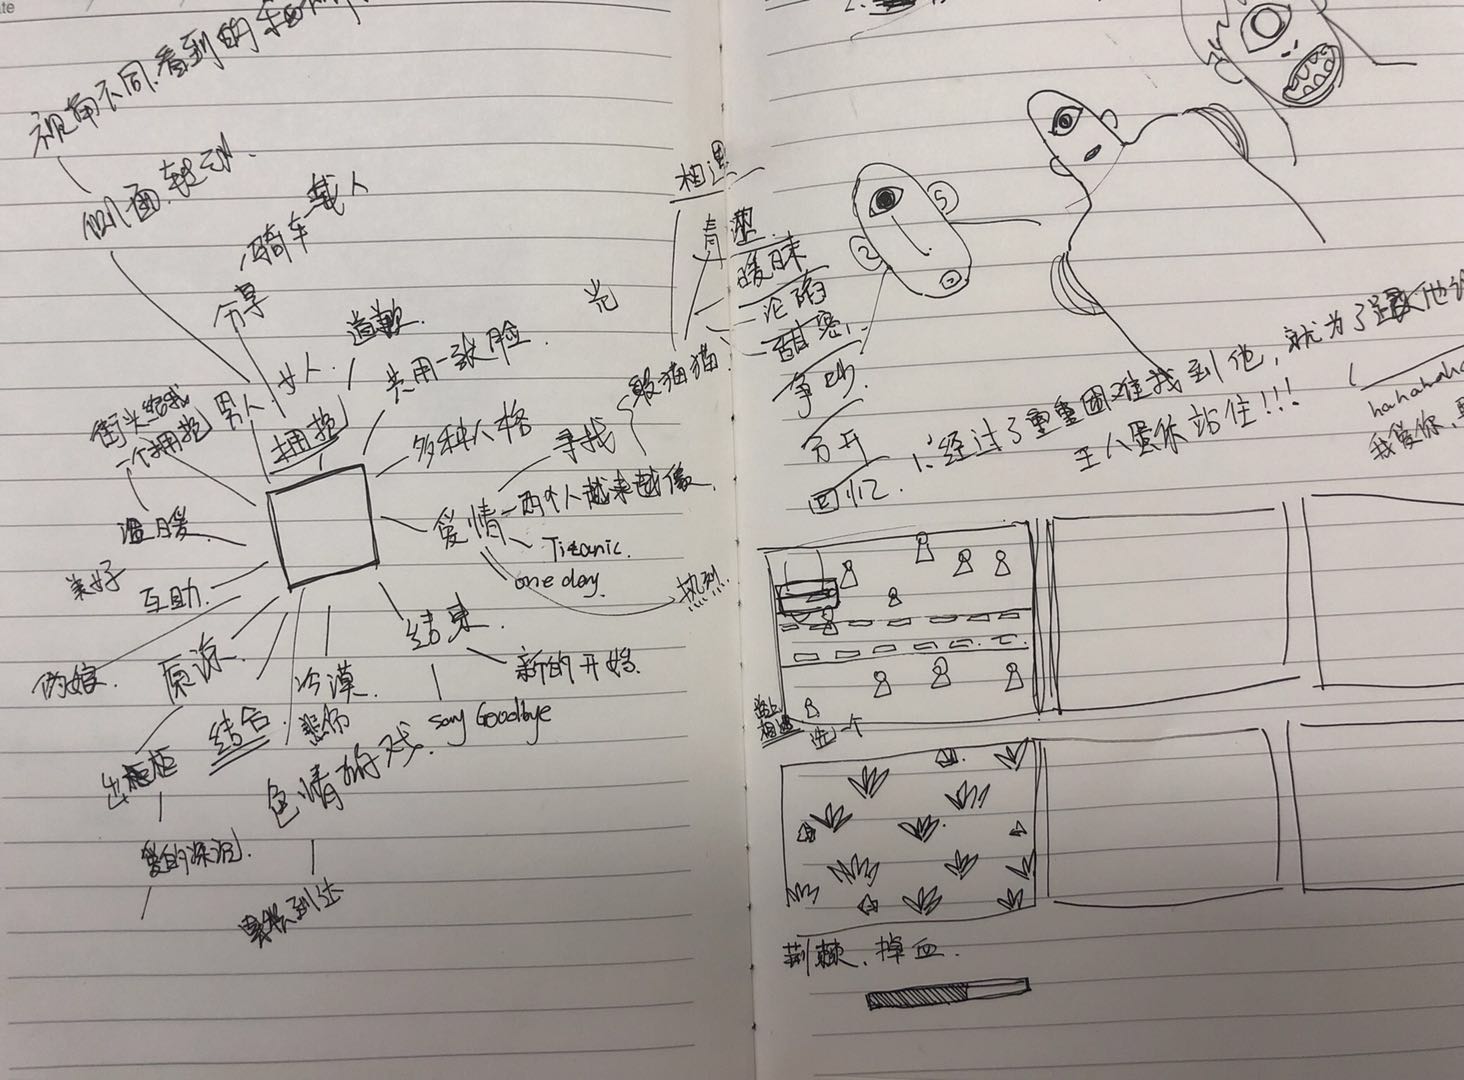 视角不同.看到的
侧面.转动.
骑车载人
分享
道歉.
光
男人
女人.
共用一张脸.
街头给我
一个拥抱
拥抱
多种人格
温暖
美好
互助.
伪娘.
原谅.
出柜
爱的深沉.
结合.
冷漠.
悲伤
色情的戏.
爱情
寻找
躲猫猫.
两个人越来越像.
Titanic.
one day.
热烈.
结束.
新的开始.
say Goodbye
相遇
青涩.
暧昧
沦陷
甜蜜.
争吵.
分开
回忆.
1.经过了重重困难找到他，就为了跟他说
王八蛋你站住!!!
hahahaha
我爱你,
路上
相遇
选一个
荆棘、掉血.